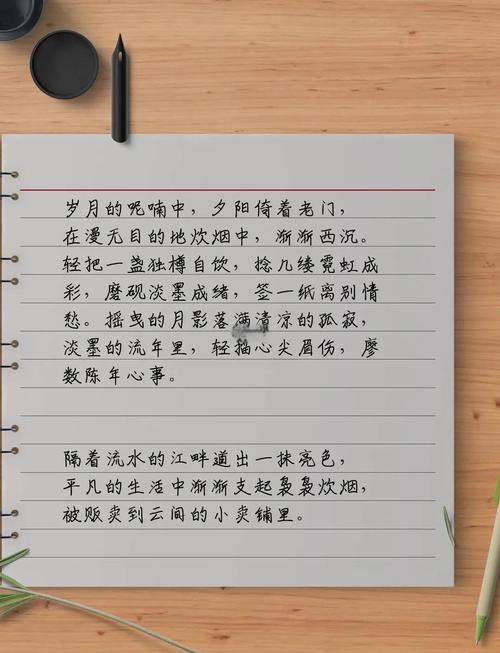 岁月的呢喃中，夕阳倚着老门，
在漫无目的地炊烟中，渐渐西沉。
轻把一盏独樽自饮，捻几缕霓虹成
彩，磨砚淡墨成绪，签一纸离别情
愁。摇曳的月影落满清凉的孤寂，
淡墨的流年里，轻描心尖眉伤，廖
数陈年心事。
隔着流水的江畔道出一抹亮色，
平凡的生活中渐渐支起袅袅炊烟，
被贩卖到云间的小卖铺里。